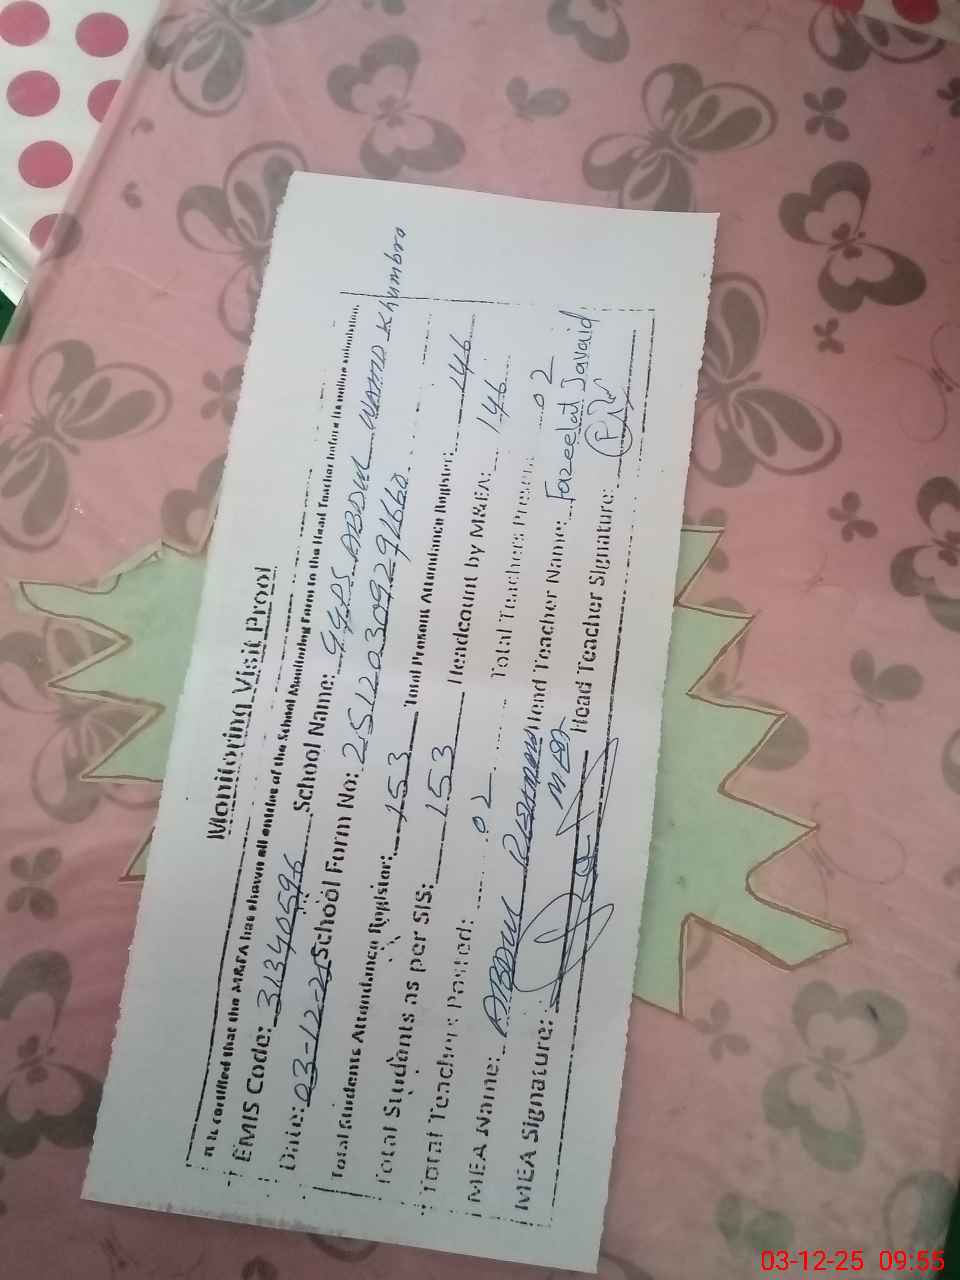 Monitoring Visit Proof
It is certified that the M&EA has shown all entries of the School Monitoring Form to the Head Teacher before its online submission.
EMIS Code: 31340596 School Name: GGPS ABDUL WAHID Khumbro
Date: 03-12-25 School Form No: 25120309291660
Total Students Attendance Register: 153 Total Present Attendance Register: 146
Total Students as per SIS: 153 Headcount by M&EA: 146
Total Teachers Posted: 02 Total Teachers Present: 02
MEA Name: ABDUL REHMAN Head Teacher Name: Fazeelat Javaid
MEA
MEA Signature: Head Teacher Signature:
03-12-25 09:55